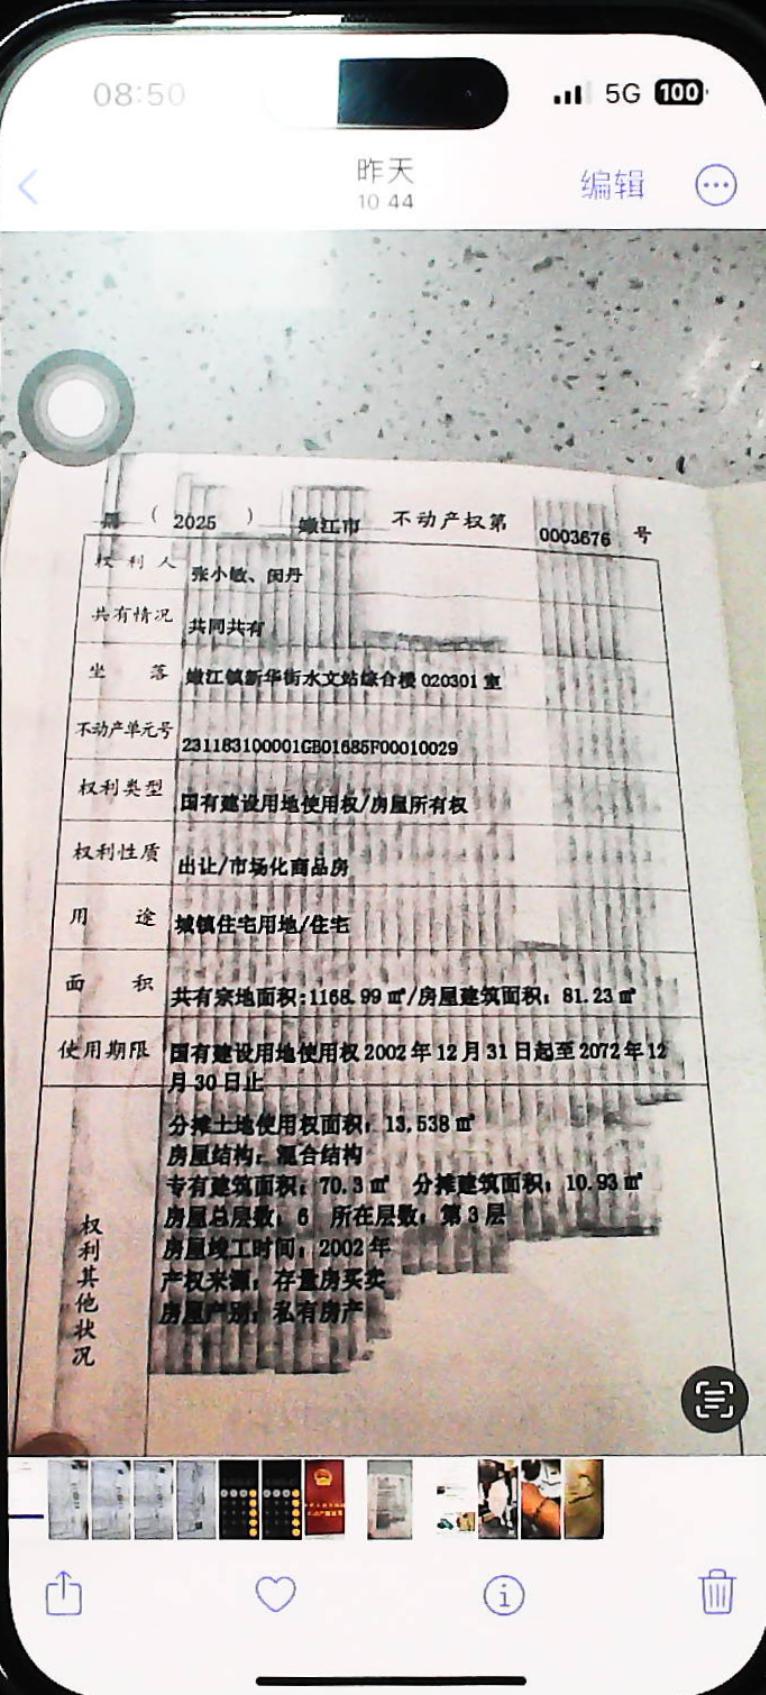 08:50
5G 100
昨天
10:44
编辑
黑 ( 2025 ) 嫩江市 不动产权第 0003676 号
权利人 张小敏、闵丹
共有情况 共同共有
坐落 嫩江镇新华街水文站综合楼 020301 室
不动产单元号 231183100001GB01685F00010029
权利类型 国有建设用地使用权/房屋所有权
权利性质 出让/市场化商品房
用途 城镇住宅用地/住宅
面积 共有宗地面积:1168.99㎡/房屋建筑面积:81.23㎡
使用期限 国有建设用地使用权 2002年12月31日起至2072年12
月30日止
权利其他状况
分摊土地使用权面积:13.538㎡
房屋结构:混合结构
专有建筑面积:70.3㎡ 分摊建筑面积:10.93㎡
房屋总层数:6 所在层数:第3层
房屋竣工时间:2002年
产权来源:存量房买卖
房屋产别:私有房产